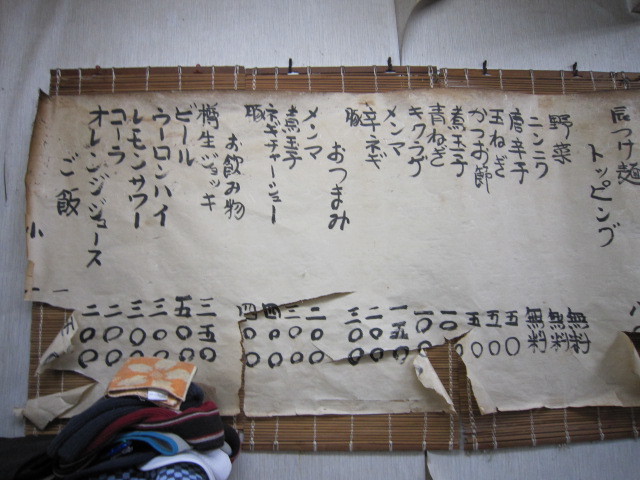 辰つけ麺
トッピング
野菜 無料
ニンニク 無料
唐辛子 無料
玉ねぎ 五〇
かつお節 五〇
煮玉子 五〇
青ねぎ 一〇〇
キクラゲ 一〇〇
メンマ 一五〇
辛ネギ 二〇〇
豚 三〇〇
おつまみ
メンマ 二〇〇
煮玉子 三〇〇
ネギチャーシュー 四〇〇
豚 四〇〇
お飲み物
樽生ジョッキ 三五〇
ビール 五〇〇
ウーロンハイ 三〇〇
レモンサワー 三〇〇
コーラ 二〇〇
オレンジジュース 二〇〇
ご飯
小